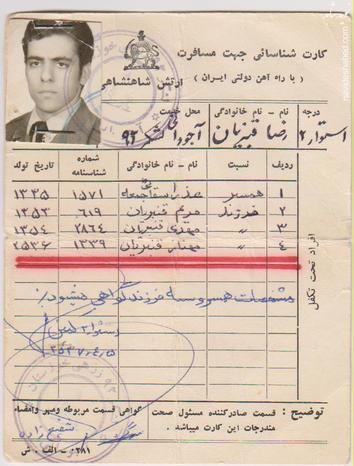 کارت شناسائی جهت مسافرت
( با راه آهن دولتی ایران )
ارتش شاهنشاهی
درجه نام - نام خانوادگی محل خدمت
استوار ۲ رضا قنبریان ۹۲
ردیف نسبت نام - نام خانوادگی شماره شناسنامه تاریخ تولد
۱ همسر عذرا ۱۵۷۱ ۱۳۳۵
۲ فرزند مریم قنبریان ۶۱۹ ۱۳۵۳
۳ " مهدی قنبریان ۲۸۶۴ ۱۳۵۴
۴ " مهناز قنبریان ۱۳۳۹ ۲۵۳۶
افراد تحت تکفل
مشخصات همسر و سه فرزند گواهی میشود
۲۵۳۷/۴/۵
توضیح : قسمت صادرکننده مسئول صحت مندرجات این کارت میباشد .
گواهی قسمت مربوطه ومهر وامضاء
۰۳۸۱ - الف . ش